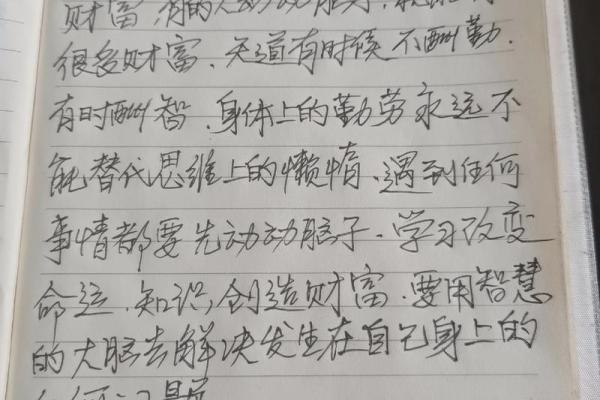 财富,有的人动动脑子,就
很多财富、天道有时候不酬勤.
有时酬智、身体上的勤劳永远不
能替代思维上的懒惰、遇到任何
事情都要先动动脑子.学习改变
命运、知识创造财富.要用智慧
的大脑去解决发生在自己身上的
任何问题